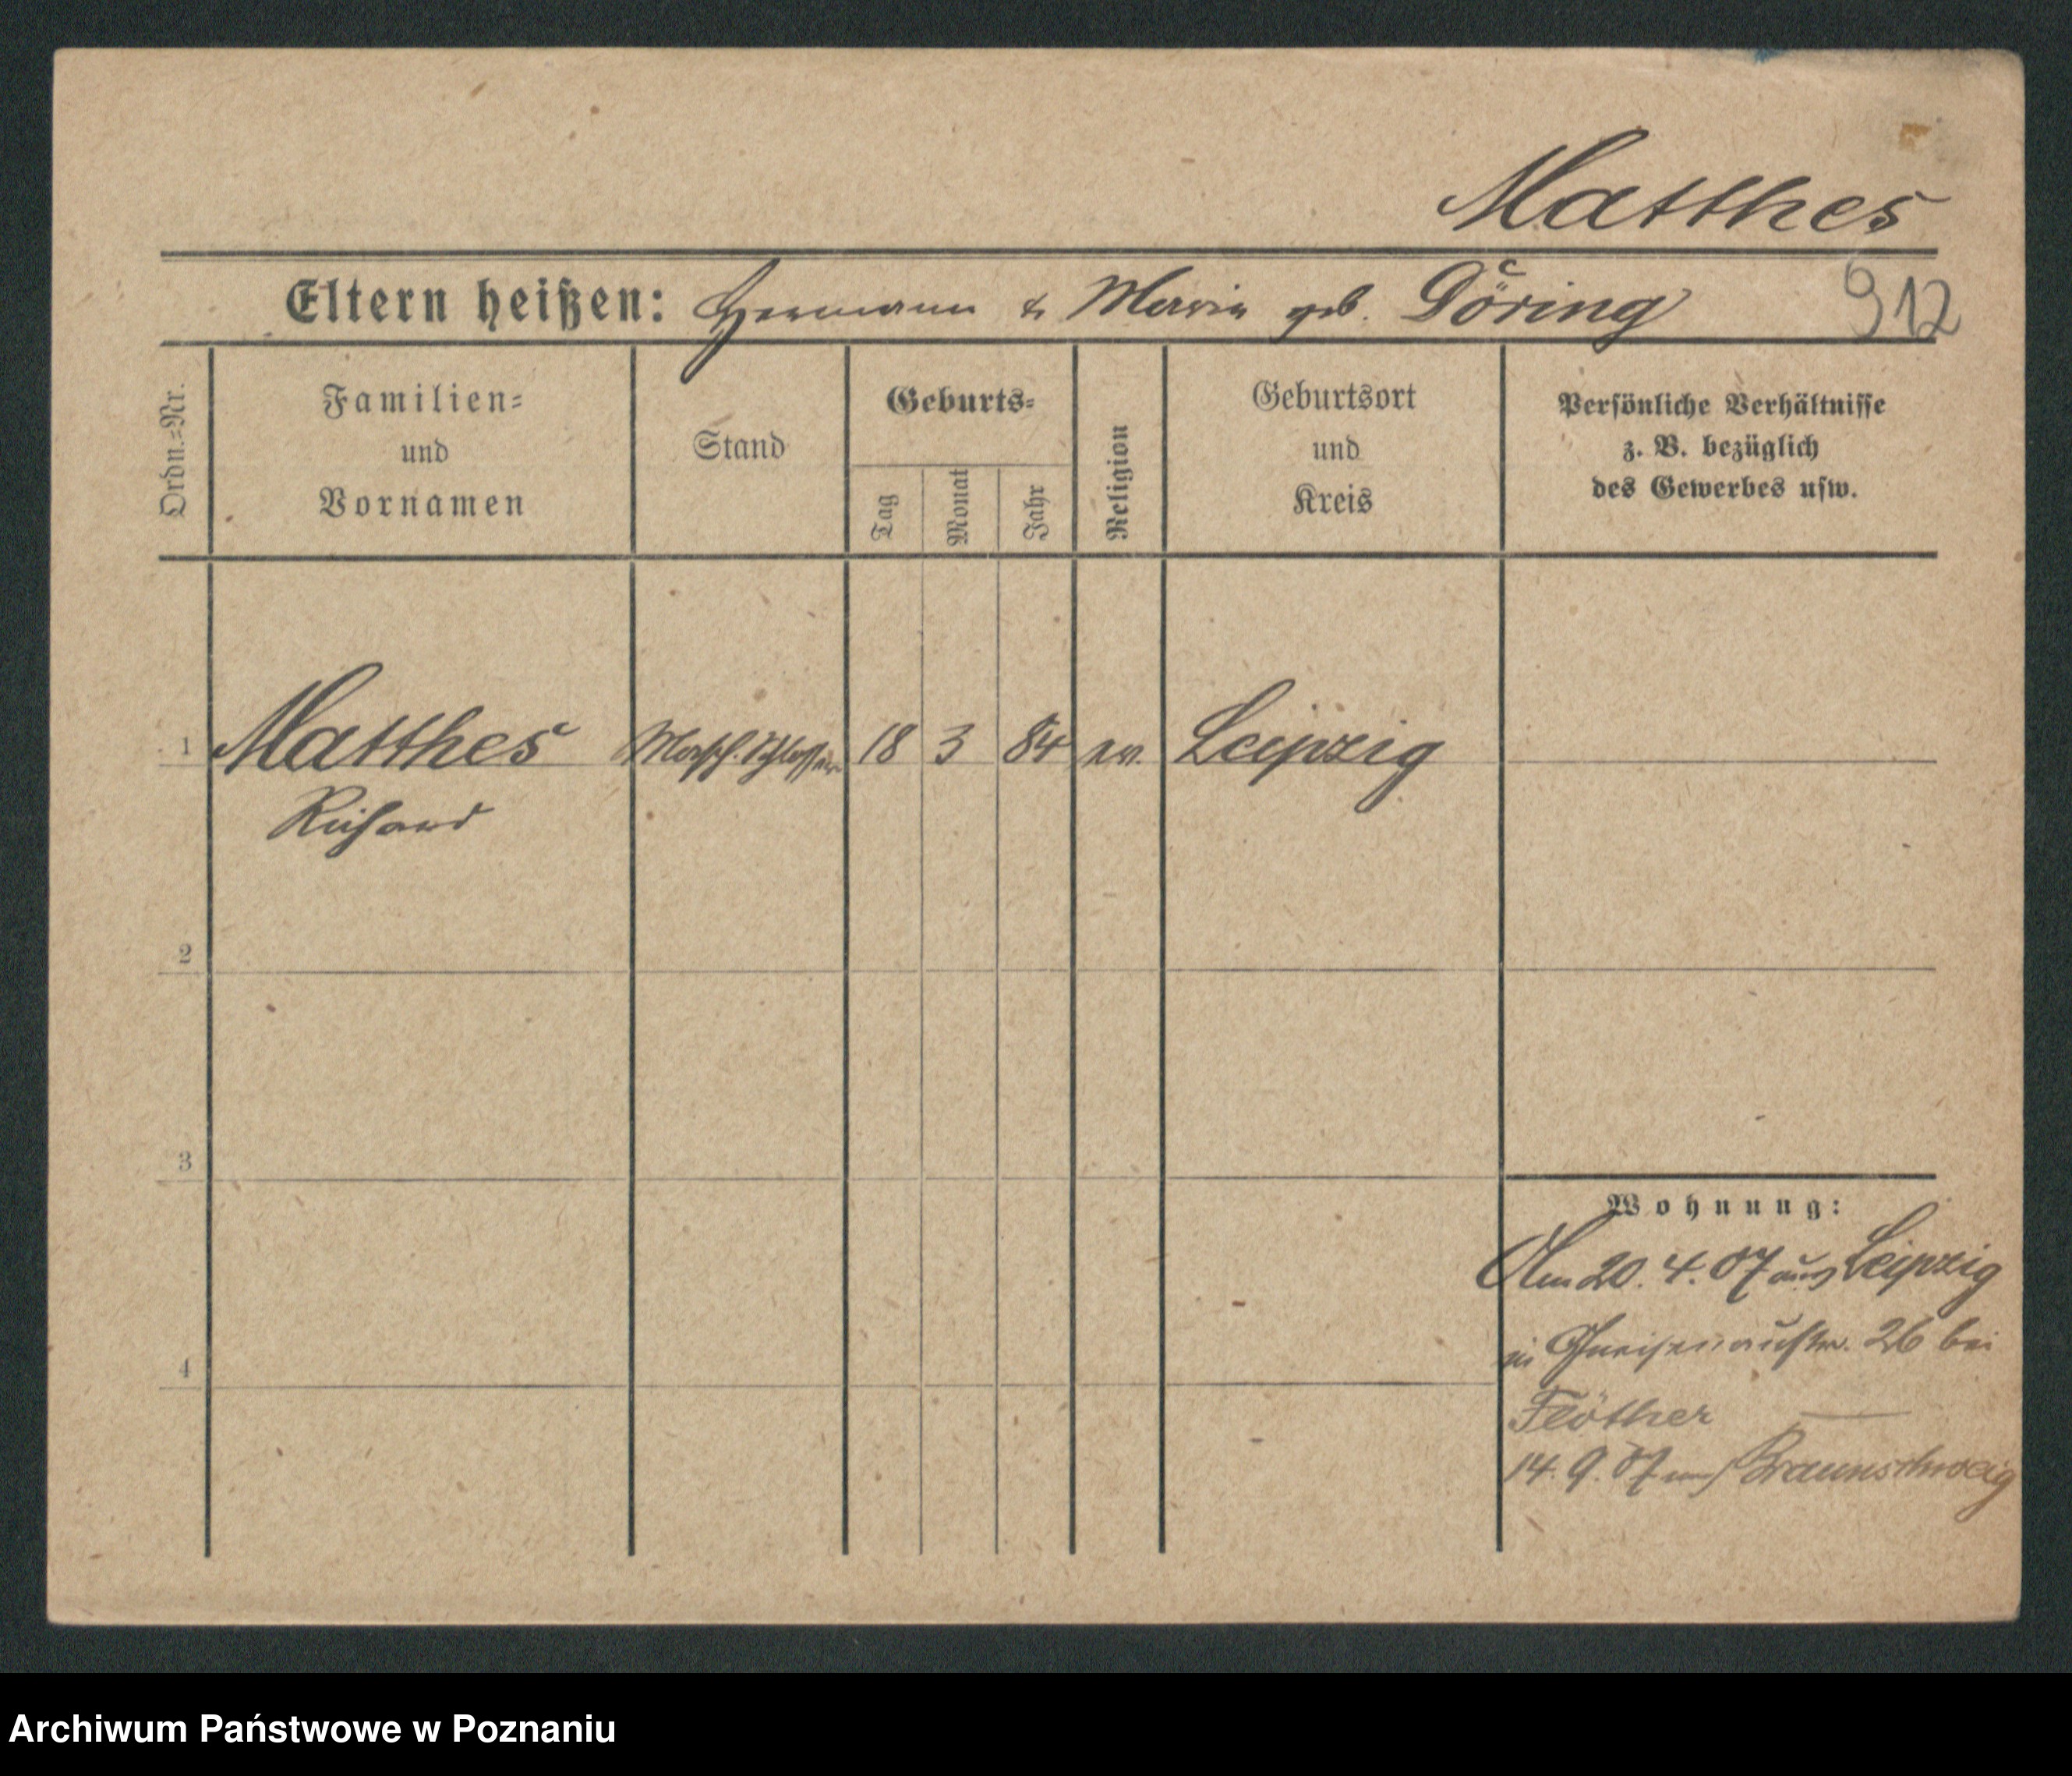 Matthes
Eltern heißen: Hermann & Maria geb. Döring
912
Ordn.=Nr.
Familien=
und
Vornamen
Stand
Geburts=
Tag
Monat
Jahr
Religion
Geburtsort
und
Kreis
Persönliche Verhältnisse
z. B. bezüglich
des Gewerbes usw.
1 Matthes Masch. Schlosser 18 3 84 ev. Leipzig
Richard
2
3
Wohnung:
Am 20. 4. 07 aus Leipzig
in Gneisenaustr. 26 bei
4
Flöther
14. 9. 07 nach Braunschweig
Archiwum Państwowe w Poznaniu